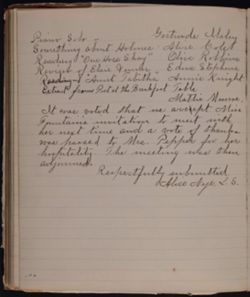 Piano Solo - Gertrude Maloy
Something about Holmes - Alice Colet
Reading "One Hoss Shay" Olive Robbins
Review of Elsie Venner - Edna Stephens
Reading "Aunt Tabitha" Annie Knight
Extract from Poet at the Breakfast Table
Mattie Munroe
It was voted that we accept Miss
Fountain's invitation to meet with
her next time and a vote of thanks
was passed to Mrs. Pepper for her
hospitality. The meeting was then
adjourned.
Respectfully submitted
Alice Nye L. S.